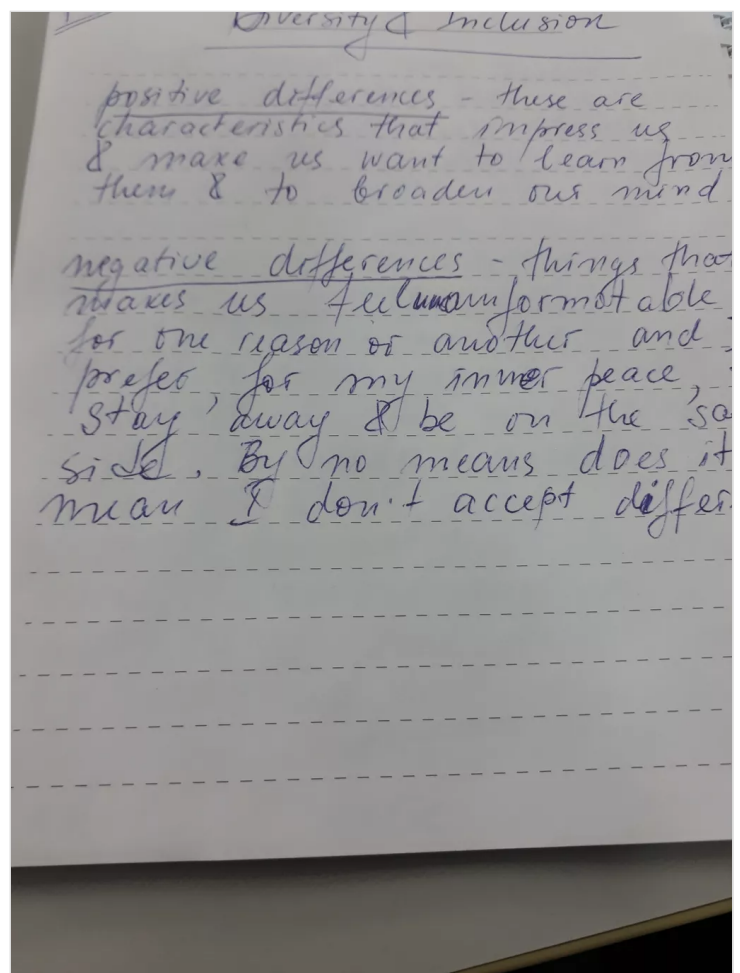 Diversity & Inclusion
positive differences - these are
characteristics that impress us
& make us want to learn from
them & to broaden our mind
negative differences - things that
makes us feel unconformotable
for one reason or another and
prefer, for my inner peace,
stay away & be on the sa
side. By no means does it
mean I don't accept differ